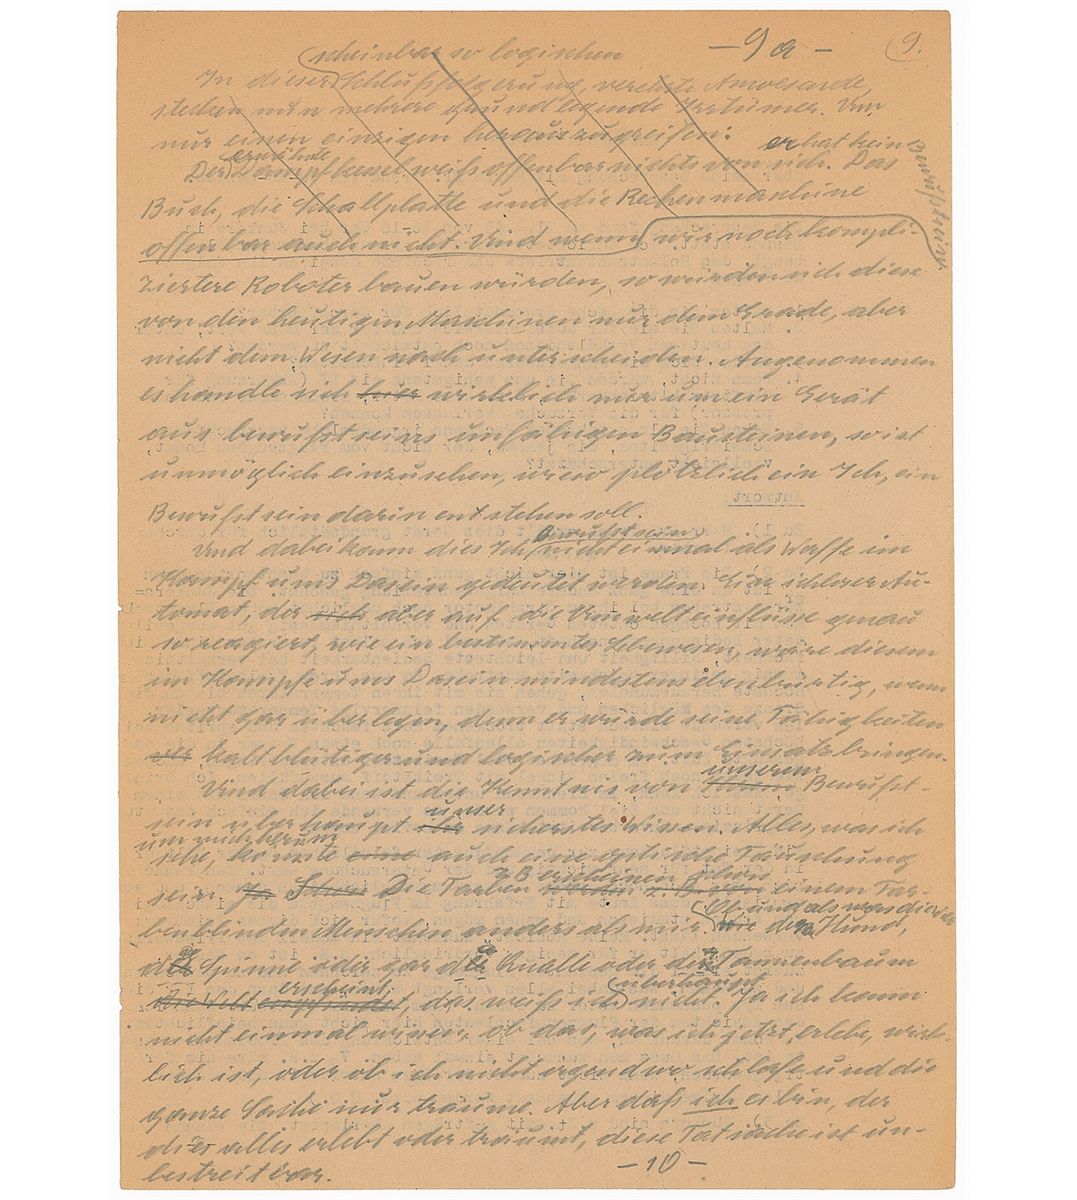 – 9a –
9.
scheinbar so logischen
In dieser Schlußfolgerung, verehrte Anwesende,
stecken nun mehrere grundlegende Irrtümer. Um
nur einen einzigen herauszugreifen:
er hat kein Bewußtsein.
erwähnte
Der Dampfkessel weiß offenbar nichts von sich. Das
Buch, die Schallplatte und die Rechenmaschine
offenbar auch nicht. Und wenn wir noch kompli-
ziertere Roboter bauen würden, so würden sich diese
von den heutigen Maschinen nur dem Grade, aber
nicht dem Wesen nach unterscheiden. Angenommen
es handle sich wirklich nur um ein Gerät
aus bewußtseinsunfähigen Bausteinen, so ist
unmöglich einzusehen, wieso plötzlich ein Ich, ein
Bewußtsein darin entstehen soll.
Bewußtsein
Und dabei kann dies Ich nicht einmal als Waffe im
Kampf ums Dasein gedeutet werden. Ein ichloser Au-
tomat, der aber auf die Umwelteinflüsse genau
so reagiert, wie ein bestimmtes Lebewesen, wäre diesem
im Kampfe ums Dasein mindestens ebenbürtig, wenn
nicht gar überlegen, denn er würde seine Fähigkeiten
kaltblütiger und logischer zum Einsatz bringen.
unserem
Und dabei ist die Kenntnis von Bewußt-
unser
sein überhaupt sicherstes Wissen. Alles, was ich
um mich herum
sehe, könnte auch eine optische Täuschung
z.B. erscheinen schon
sein. Die Farben einem Far-
Ob und als was die Welt
benblinden Menschen anders als mir. der Hund,
der Spinne oder gar der Qualle oder der Tannenbaum
erscheint überhaupt
, das weiß ich nicht. Ja ich kann
nicht einmal wissen, ob das, was ich jetzt erlebe, wirk-
lich ist, oder ob ich nicht irgendwo schlafe und die
ganze Sache nur träume. Aber daß ich es bin, der
dies alles erlebt oder träumt, diese Tatsache ist un-
bestreitbar.
– 10 –